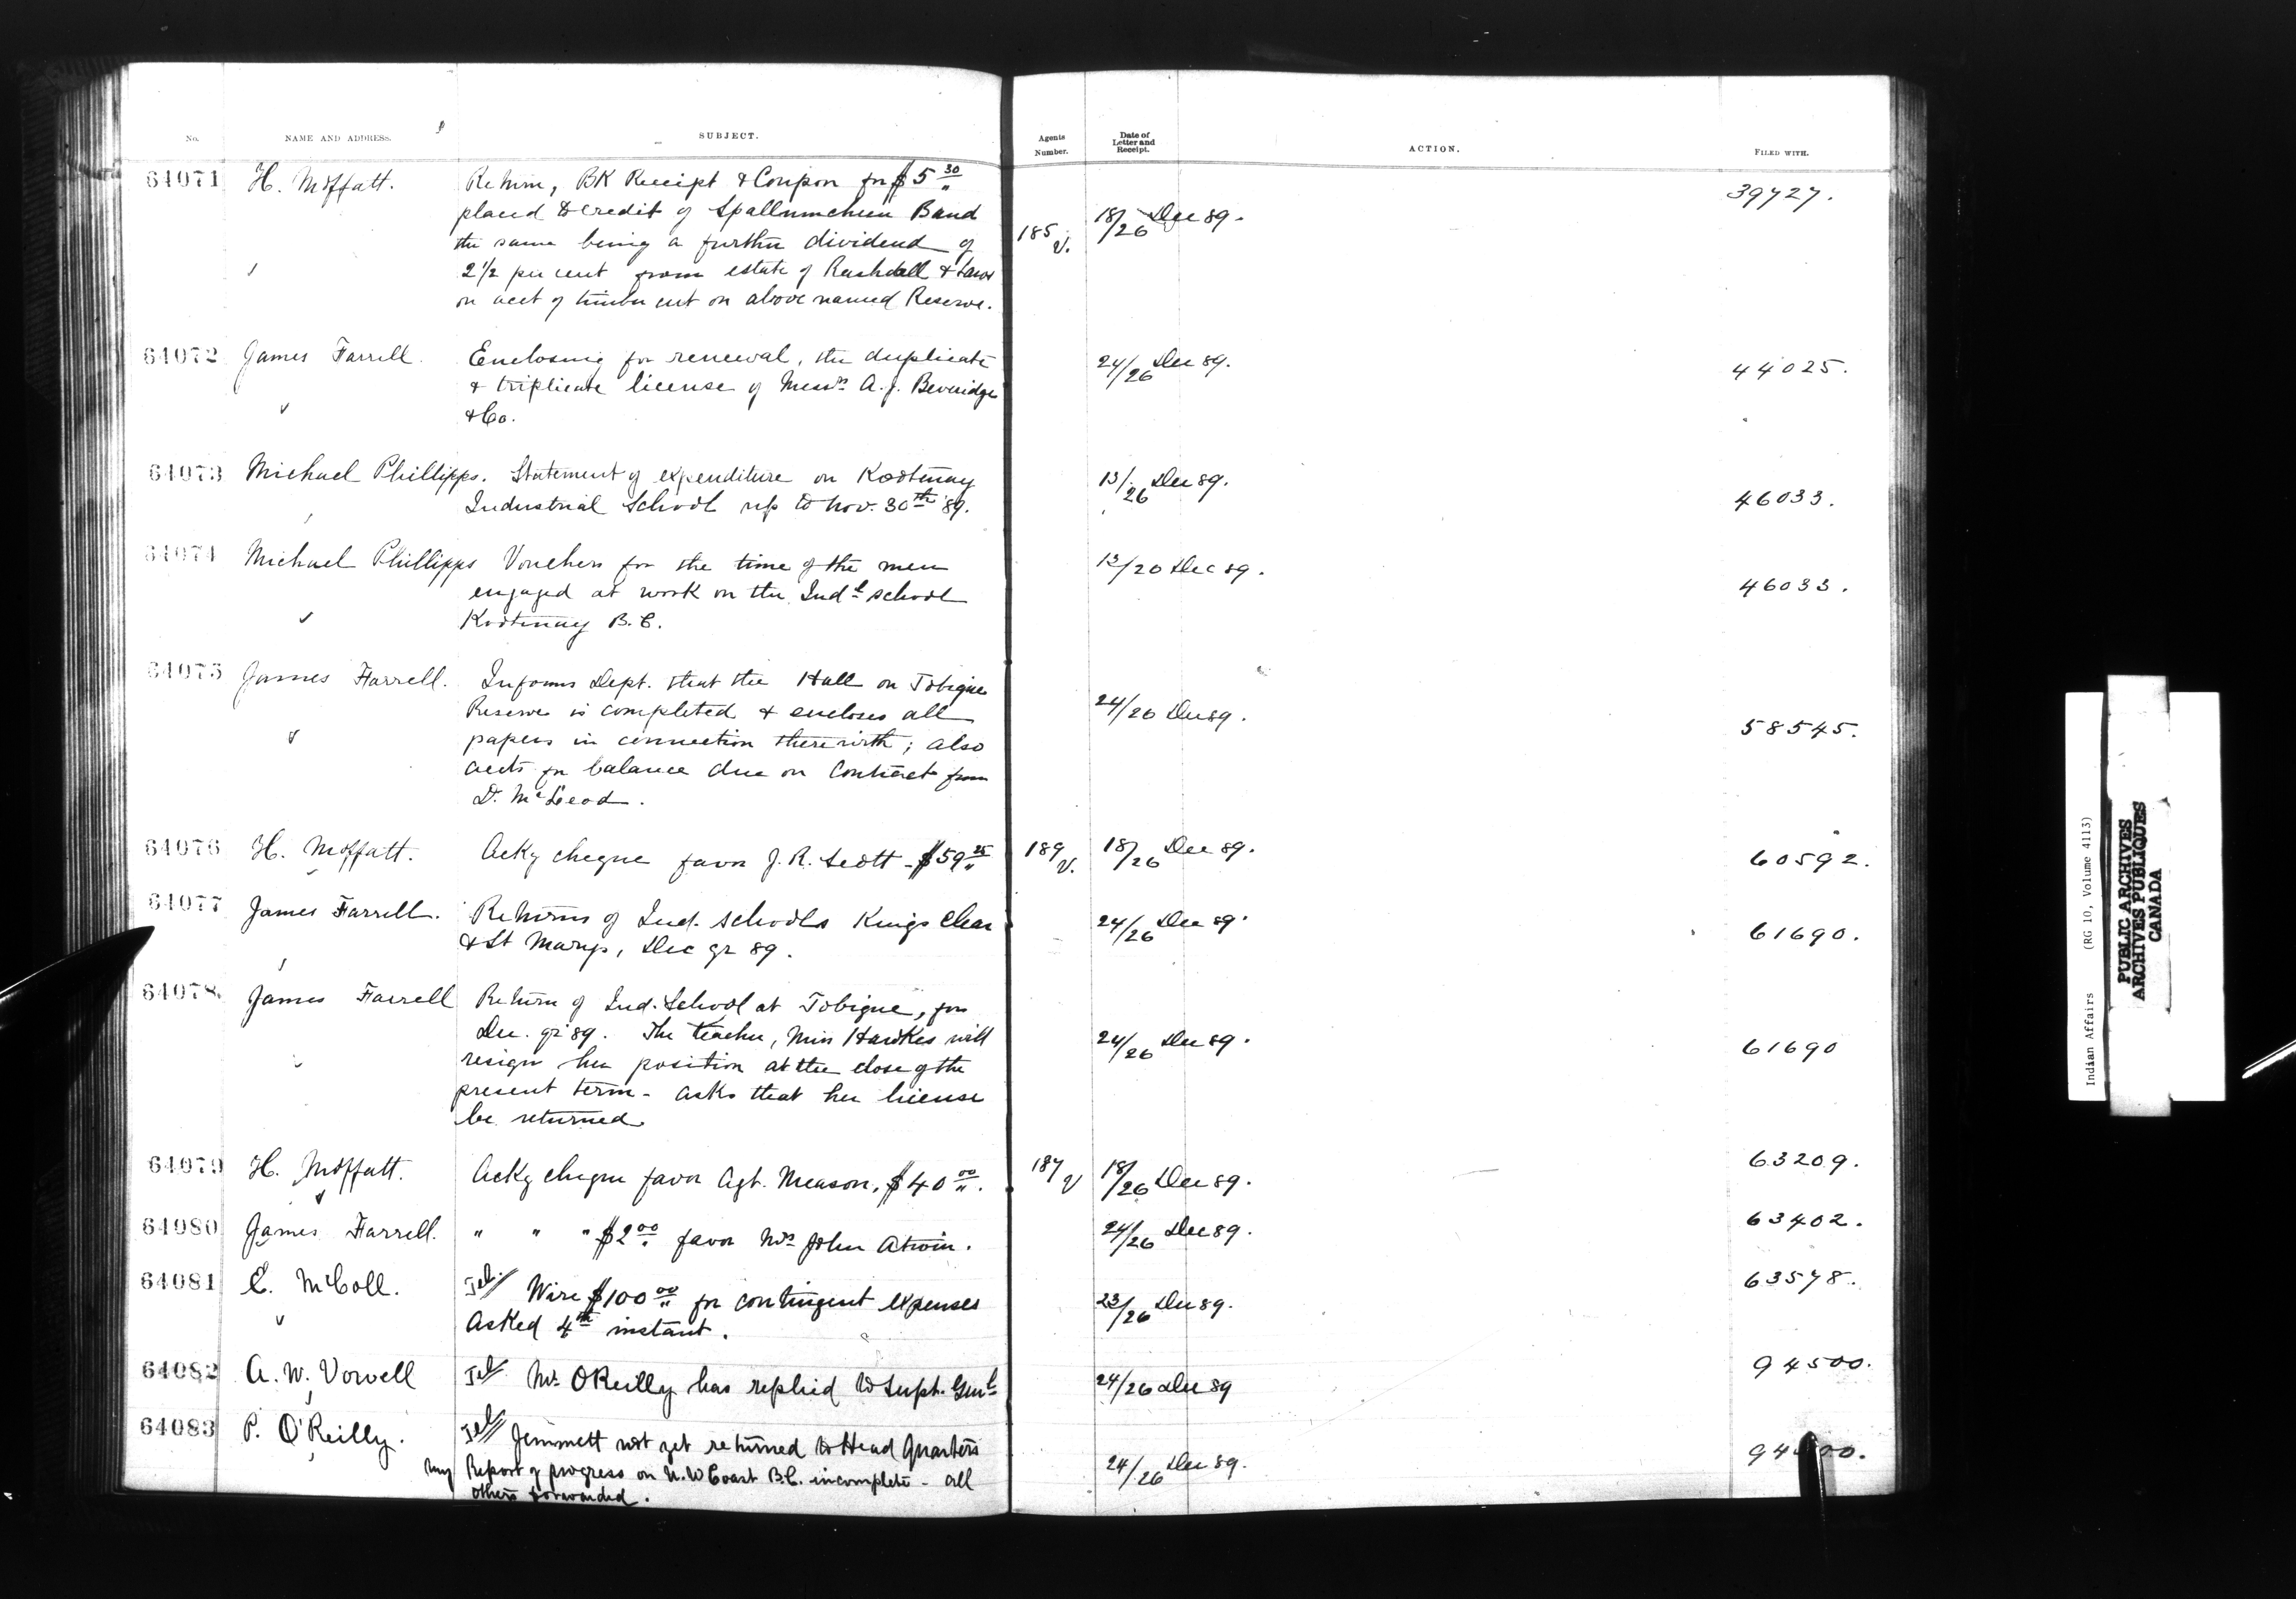 No. NAME AND ADDRESS. SUBJECT. Agents Number. Date of Letter and Receipt. ACTION. FILED WITH.
64071 H. Moffatt. Return, BK Receipt & Coupon for $5 30/" 39727.
placed to credit of Spallumcheen Band 185 V. 18/26 Dec 89.
the same being a further dividend of
2 1/2 per cent from estate of Rashdall & Laws
on acct of timber cut on above named Reserve.
64072 James Farrell. Enclosing for renewal, the duplicate 24/26 Dec 89. 44025.
& triplicate license of Messrs A. J. Beveridge
& Co.
64073 Michael Phillipps. Statement of expenditure on Kootenay 13/26 Dec 89. 46033.
Industrial School up to Nov. 30th '89.
64074 Michael Phillipps Vouchers for the time of the men 13/26 Dec 89. 46033.
engaged at work on the Indl School
Kootenay B.C.
64075 James Farrell. Informs Dept. that the Hall on Tobique
Reserve is completed & encloses all 24/26 Dec 89. 58545.
papers in connection therewith; also
accts for balance due on contract from
D. McLeod.
64076 H. Moffatt. Ackg cheque favor J. R. Scott - $59 25/" 189 V. 18/26 Dec 89. 60592.
64077 James Farrell. Returns of Ind. Schools Kings Clear 24/26 Dec 89. 61690.
& St Marys, Dec qr 89.
64078 James Farrell Return of Ind. School at Tobique, for
Dec. qr 89. The teacher, Miss Hawkes will 24/26 Dec 89. 61690
resign her position at the close of the
present term - asks that her license
be returned
64079 H. Moffatt. Ackg cheque favor Agt. Meason, $40 00/". 187 V 18/26 Dec 89. 63209.
64080 James Farrell. " " " $2 00/" favor Mrs John Atwin. 24/26 Dec 89. 63402.
64081 E. McColl. Tel. Wire $100 00/" for contingent expenses 23/26 Dec 89. 63578.
asked 4th instant.
64082 A. W. Vowell Tel Mr O'Reilly has replied to Supt. Genl 24/26 Dec 89 94500.
64083 P. O'Reilly. Tel Jemmett not yet returned to Head Quarters
my Report of progress on N.W Coast B.C. incomplete - all 24/26 Dec 89. 94
others forwarded.
Indian Affairs (RG 10, Volume 4113)
PUBLIC ARCHIVES
ARCHIVES PUBLIQUES
CANADA